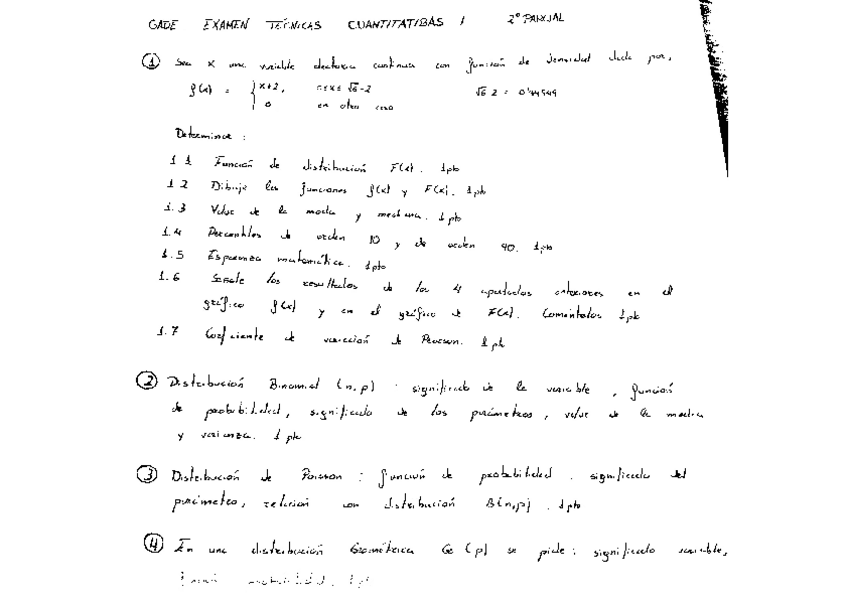 GADE EXAMEN TÉCNICAS CUANTITATIBAS 1 2º PARCIAL
① Sea x una variable aleatoria continua con función de densidad dada por,
f(x) = { x+2, 0≤x≤ √6-2 √6-2 = 0'44949
0 en otro caso
Determinar :
1.1 Función de distribución F(x). 1pto
1.2 Dibuje las funciones f(x) y F(x). 1pto
1.3 Valor de la moda y mediana. 1pto
1.4 Percentiles de orden 10 y de orden 90. 1pto
1.5 Esperanza matemática. 1pto
1.6 Señale los resultados de los 4 apartados anteriores en el
gráfico f(x) y en el gráfico de F(x). Coméntelos 1pto
1.7 Coeficiente de variación de Pearson. 1pto
② Distribución Binomial (n,p) : significado de la variable, función
de probabilidad, significado de los parámetros, valor de la media
y varianza. 1pto
③ Distribución de Poisson : función de probabilidad. significado del
parámetro, relación con distribución B(n,p). 1pto
④ En una distribución Geométrica Ge (p) se pide : significado variable,